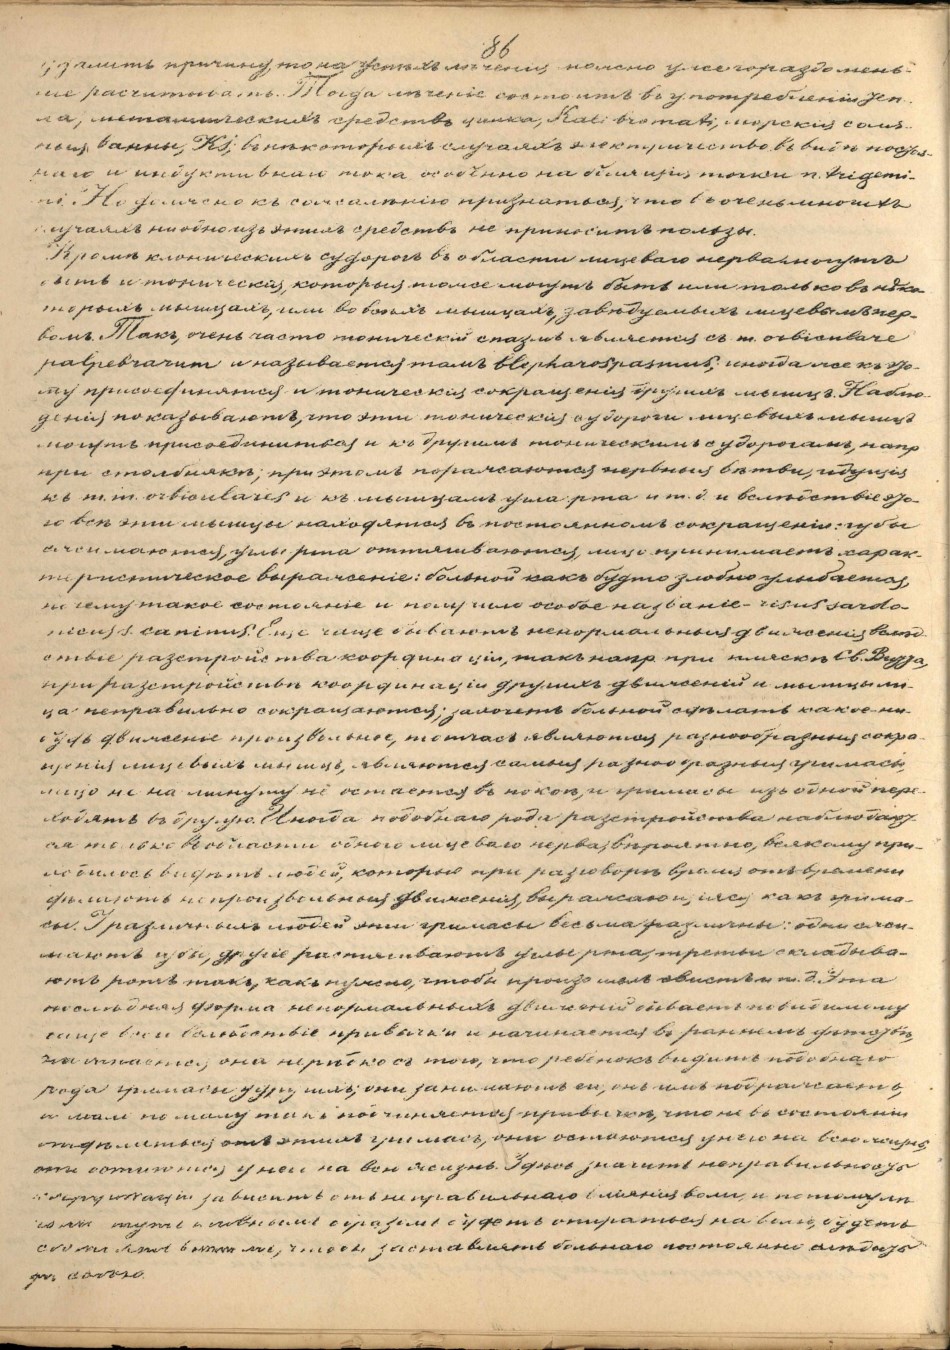 86
далить причину, то на успехъ лѣченія можно уже гораздо мень-
ше расчитывать. Тогда лѣченіе состоитъ въ употребленіи
металлическихъ средствъ цинка, Kali bromati, морскія соля-
ныя ванны, KJ; въ нѣкоторыхъ случаяхъ электричество въ видѣ посто-
наго и индуктивнаго тока особенно на болящія точки n. trigemi-
ni. Но должно къ сожалѣнію признаться, что въ очень многихъ
случаяхъ ни одно изъ этихъ средствъ не приноситъ пользы.
Кромѣ клоническихъ судорогъ въ области лицеваго нерва могутъ
быть и тоническія, которыя тоже могутъ быть или только въ нѣко-
торыхъ мышцахъ, или во всѣхъ мышцахъ, завѣдуемыхъ лицевымъ нер-
вомъ. Такъ, очень часто тоническій спазмъ является въ m. orbiculare
palpebrarum и называется тамъ blepharospasmus; иногда же къ это-
му присоединяются и тоническія сокращенія другихъ мышцъ. Наблю-
денія показываютъ, что эти тоническія судороги лицевыхъ мышцъ
могутъ присоединиться и къ другимъ тоническимъ судорогамъ, напр
при столбнякѣ; при этомъ поражаются нервныя вѣтви, идущія
къ m.m. orbiculares и къ мышцамъ угла рта и т. д. и вслѣдствіе это-
го всѣ эти мышцы находятся въ постоянномъ сокращеніи: губы
сжимаются, углы рта оттягиваются, лицо принимаетъ харак-
теристическое выраженіе: больной какъ будто злобно улыбается,
почему такое состояніе и получило особое названіе - risus sardo-
nicus s. caninus. Еще чаще бываютъ ненормальныя движенія вслѣд-
ствіе разстройства координаціи, такъ напр. при пляскѣ Св. Витта,
при разстройствѣ координаціи другихъ движеній и мышцы ли-
ца неправильно сокращаются; захочетъ больной сдѣлать какое-ни-
будь движеніе произвольное, тотчасъ являются разнообразныя сокра-
щенія лицевыхъ мышцъ, являются самыя разнообразныя гримасы,
лицо не на минуту не остается въ покоѣ, и гримасы изъ одной пере-
ходятъ въ другую. Иногда подобнаго рода разстройства наблюдают-
ся только въ области одного лицеваго нерва, вѣроятно, всякому при-
ходилось видѣть людей, которые при разговорѣ время отъ времени
дѣлаютъ непроизвольныя движенія, выражающіяся какъ грима-
сы. У различныхъ людей эти гримасы весьма различны: одни сжи-
маютъ губы, другіе растягиваютъ углы рта, третьи складыва-
ютъ ротъ такъ, какъ нужно, чтобы произошелъ свистъ и т. д. Эта
послѣдняя форма ненормальныхъ движеній бываетъ повидимому
чаще всего вслѣдствіе привычки и начинается въ раннемъ дѣтствѣ,
начинается она нерѣдко съ того, что ребенокъ видитъ подобнаго
рода гримасы у другихъ; они занимаютъ его, онъ имъ подражаетъ,
и мало по малу такъ подчиняется привычкѣ, что не въ состояніи
отдѣлаться отъ этихъ гримасъ, они остаются у него на всю жизнь,
они остаются у него на всю жизнь. Здѣсь значитъ неправильность
зависитъ отъ неправильнаго вліянія воли, и потому лѣ-
ченіе тутъ главнымъ образомъ будетъ опираться на волю, будетъ
состоять въ томъ, чтобы заставлять больнаго постоянно слѣдить
за собою.